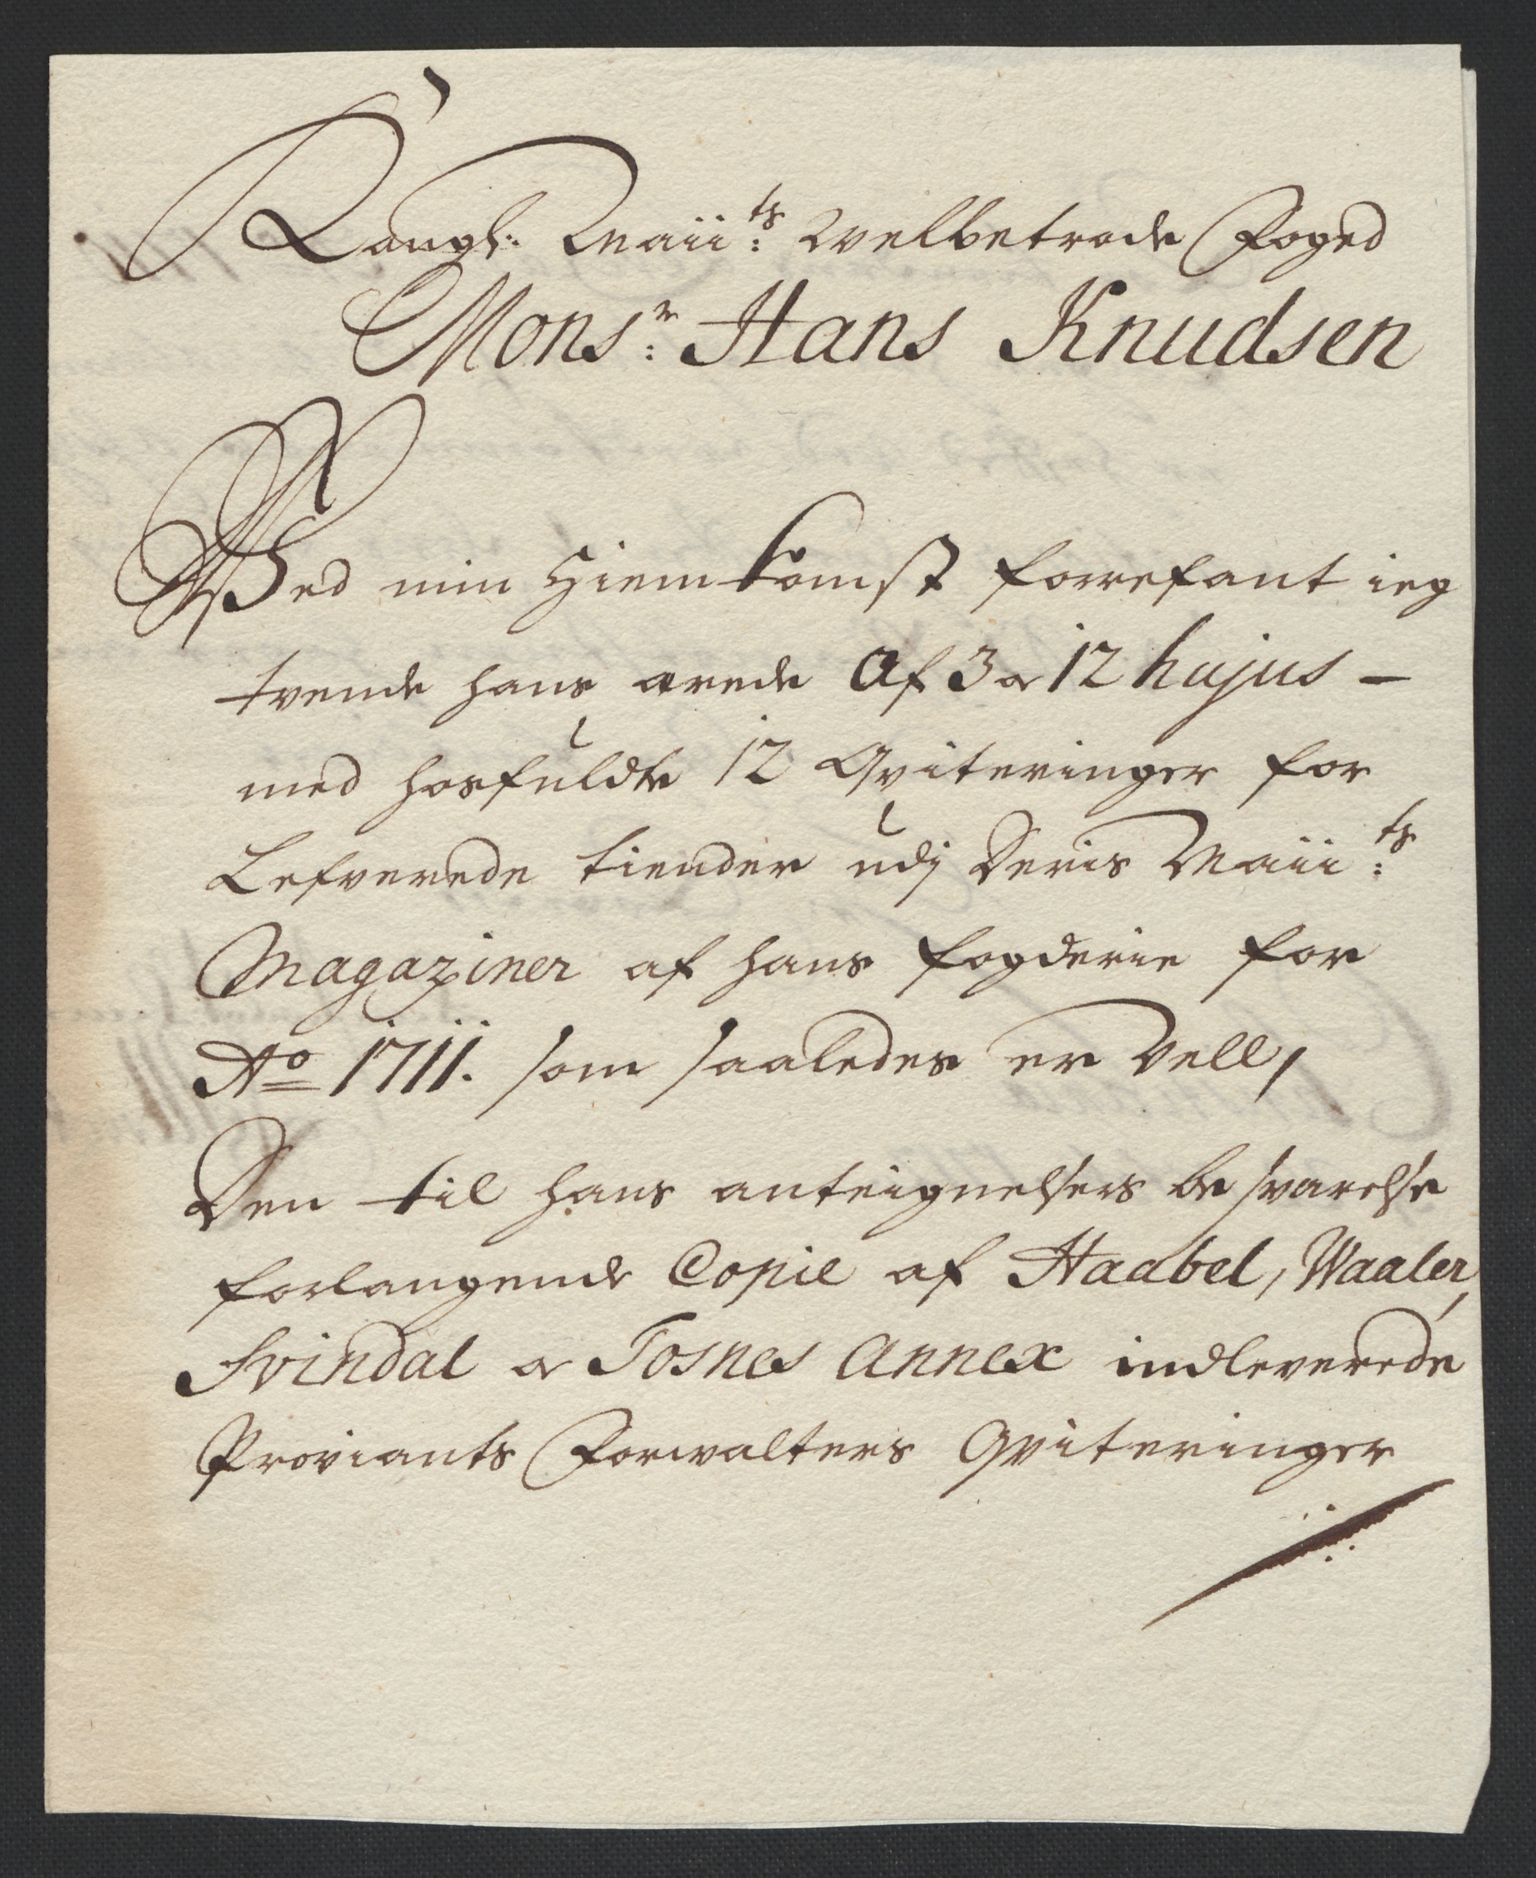 Kongl: Maii:ts Velbetrode Foged
Mons:r Hans Knudsen
Ved min Hiemkomst forrefant ieg
tvende hans af 3 o 12 hujus -
med hosfuldte 12 Qviteringer for
Lefverede tiender udj Deris Maii:ts
Magaziner af hans fogderie for
Ao 1711. som saaledes er vell,
Den til hans anteignelsers besvarelse
forlangende Copie af Haabel, Waaler,
Svindal o Tosnes Annex indleverede
Proviants Forwalters Qviteringer